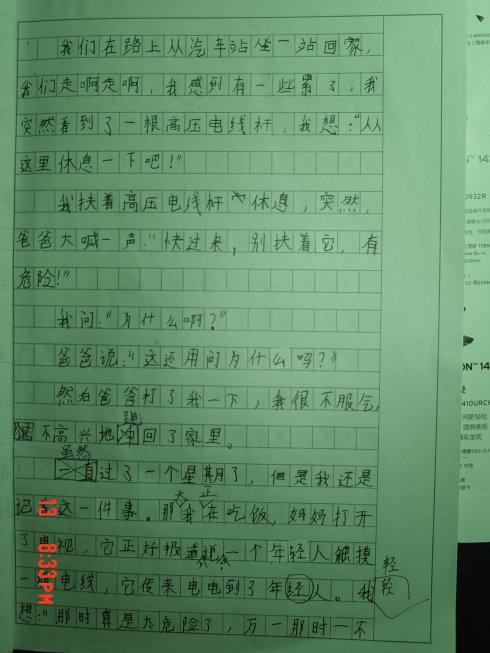 我们在路上从汽车站坐一站回家,
我们走啊走啊,我感到有一些累了,我
突然看到了一根高压电线杆,我想:"从
这里休息一下吧!"
我扶着高压电线杆 休息,突然,
爸爸大喊一声:"快过来,别扶着它,有
危险!"
我问:"为什么啊?"
爸爸说:"这还用问为什么吗?"
然后爸爸打了我一下,我很不服气,
跑
不高兴地冲回了家里。
虽然
一直过了一个星期了,但是我还是
记 这一件事。那天我正在吃饭,妈妈打开
了电视,它正好报道 一个年轻人触摸
一 电线,它传来电电到了年经人。我
轻
轻
想:"那时真是太危险了,万一那时一不
13 8:33PM